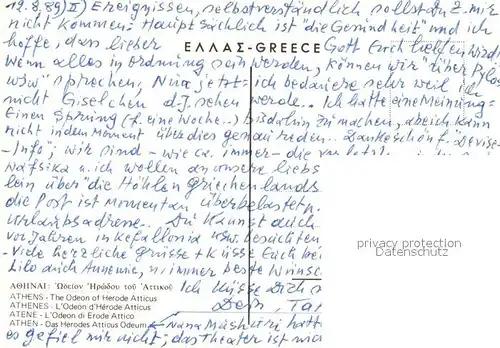 12.8.89) II) Ereignissen, selbstverständlich sollst du z. mir
nicht kommen: Hauptsächlich ist "die Gesundheit" und ich
hoffe, dass lieber Gott Euch helfen wird
ΕΛΛΑΣ-GREECE
Wenn alles in Ordnung sein werden, können wir "über
usw" sprechen, Nur jetzt- ich bedauere sehr weil ich
nicht Giselchen d.J. sehen werde.. Ich hatte eine Meinung:
Einen Sprung (f. eine Woche..) bis dahin zu machen, aber ich kann
nicht in dem Moment über dies genau reden.. Dankeschön f. "Devise-
-Info"; wir sind - wie ca. immer - die
Nafsika u. ich wollen an unsere liebs
lein über "die Höhlen Griechenlands
die Post ist momentan überbelastet
Urlaubsadresse.. Du kannst auch
vor Jahren in Kefallonia usw. besichten
-Viele herzliche Grüsse + Küsse Euch bei
Lilo auch Annemie, n, immer beste Wünsc
privacy protection
Datenschutz
Ich küsse Dich s
Dein,
ΑΘΗΝΑΙ: Ὠδεῖον Ἡρώδου τοῦ Ἀττικοῦ
ATHENS - The Odeon of Herode Atticus
ATHENES - L'Odeon d'Hérode Atticus
ATENE - L'Odeon di Erode Attico
ATHEN - Das Herodes Atticus Odeum
Nana Mushuri hatt
es gefiel mir nicht; das Theater ist